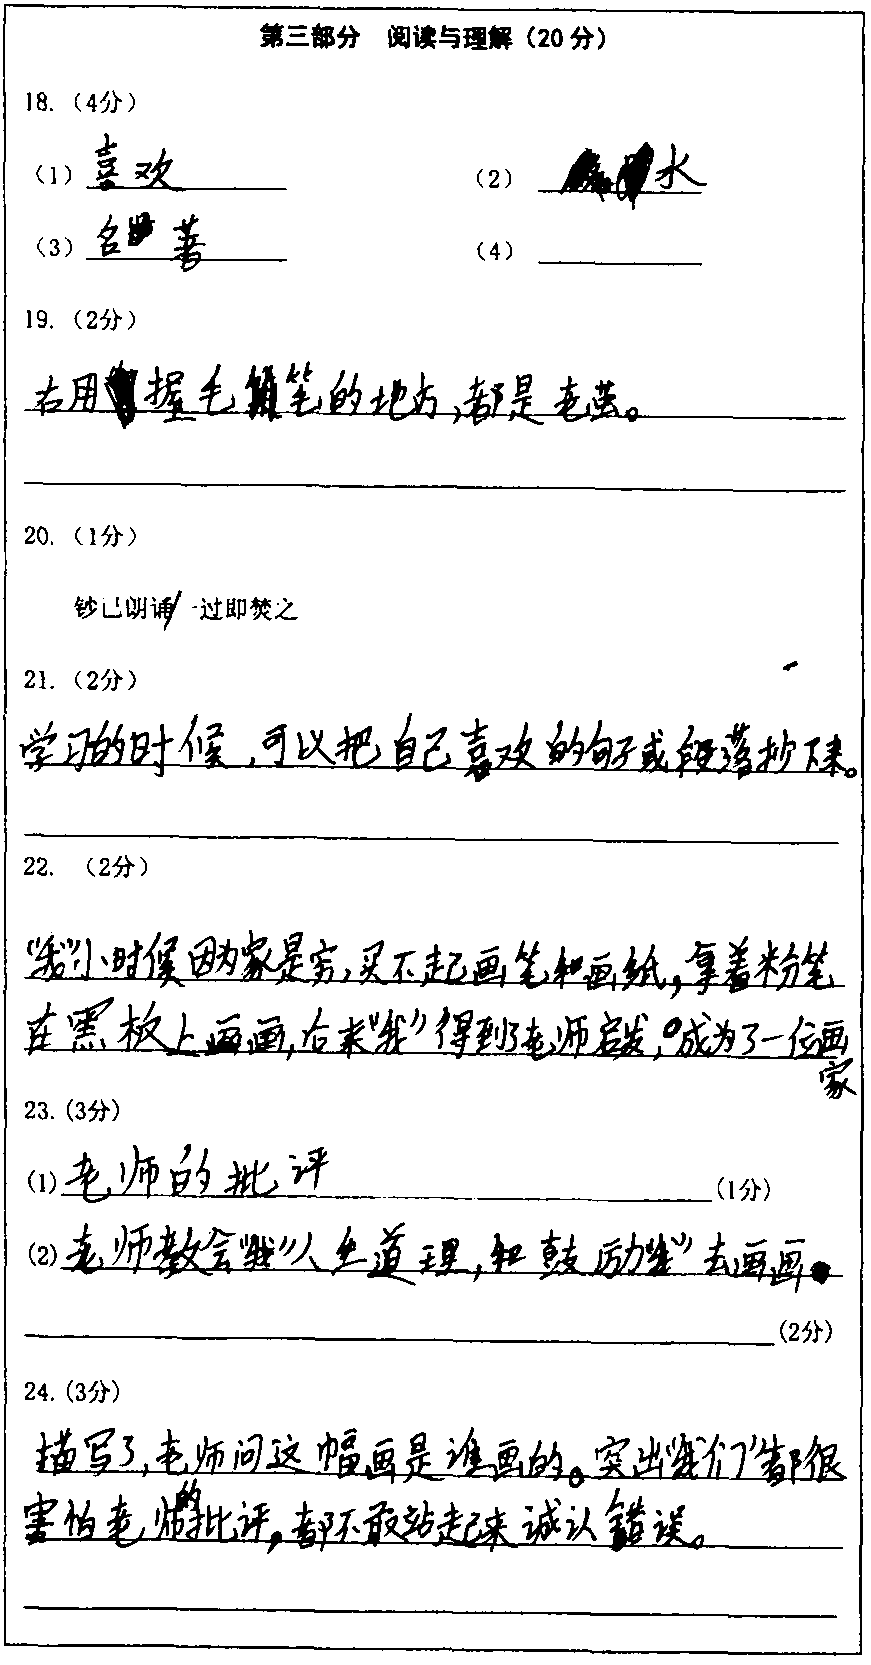 第三部分 阅读与理解（20分）
18.（4分）
（1）喜欢 （2）水
（3）名著 （4）
19.（2分）
右用握毛笔的地方,都是老茧。
20.（1分）
钞已朗诵/一过即焚之
21.（2分）
学习的时候,可以把自己喜欢的句子或段落抄下来。
22. （2分）
“我”小时候因为家是穷,买不起画笔和画纸,拿着粉笔
在黑板上画画,后来“我”得到了老师启发,成为了一位画
家
23.(3分)
(1)老师的批评(1分)
(2)老师教会“我”人生道理,和鼓励“我”去画画。
(2分)
24.(3分)
描写了,老师问这幅画是谁画的。突出“我们”都很
害怕老师的批评,都不敢站起来诚认错误。